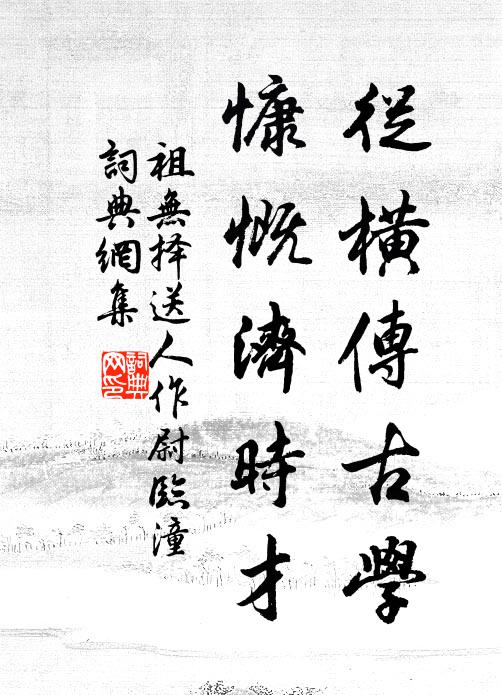 從橫傳古學
慷慨濟時才
祖無择送人作尉臨潼
詞典網集
詞典
网印